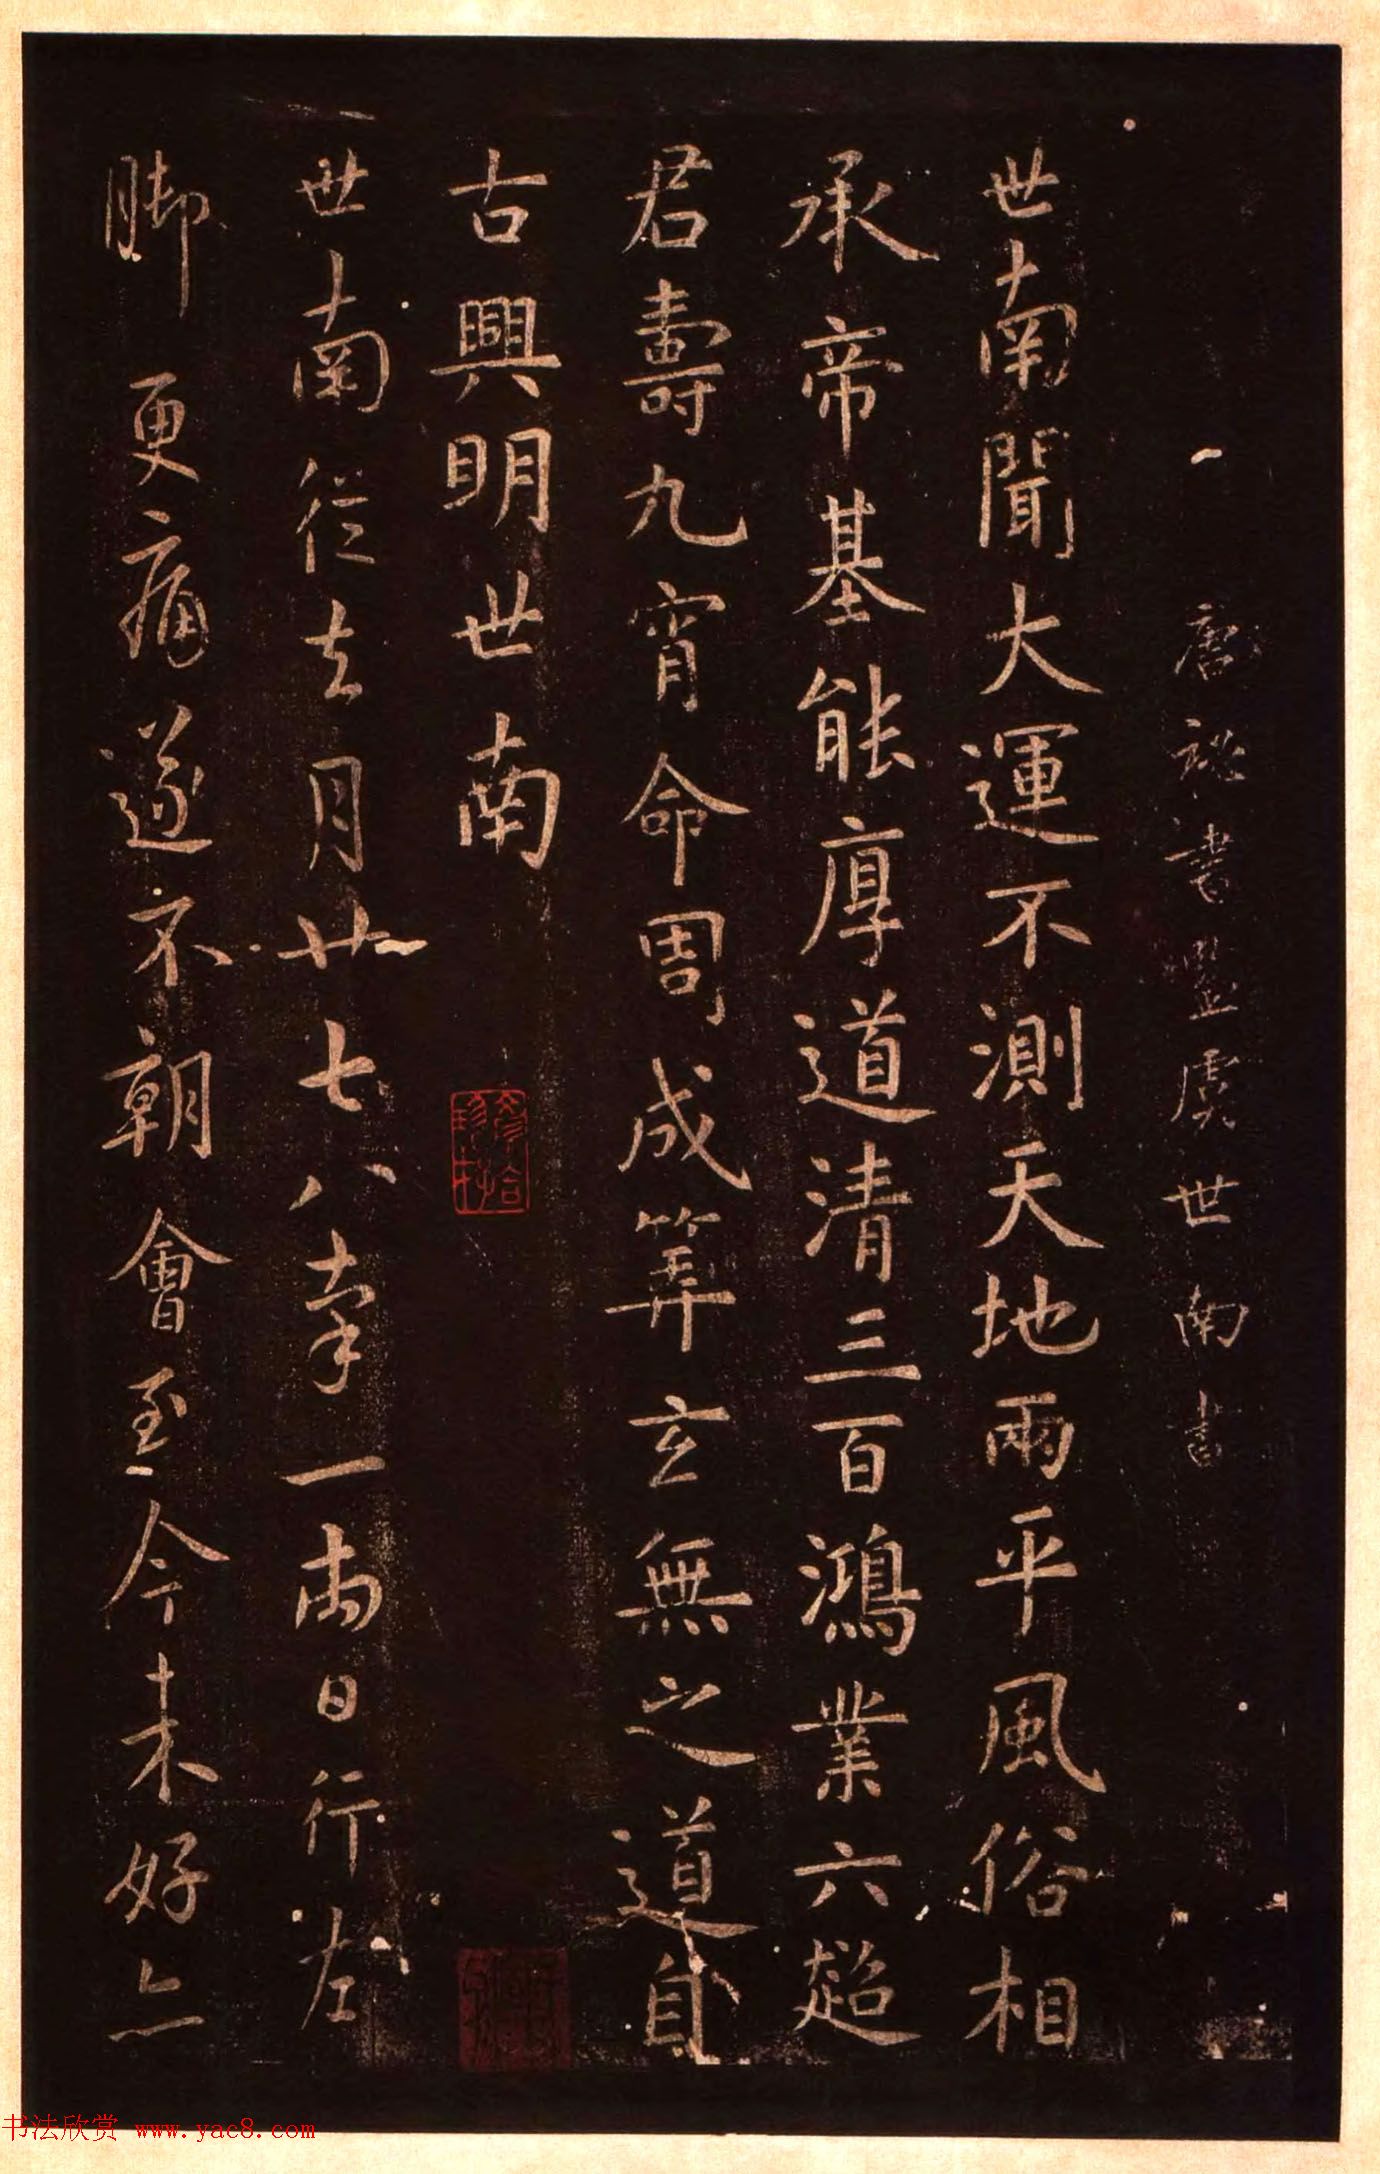 唐秘書監虞世南書
世南聞大運不測天地兩平風俗相
承帝基能厚道清三百鴻業六超
君壽九宵命周成筭玄無之道自
古興明世南
世南從去月廿七八率一兩日行左
脚更痛遂不朝會至今未好亦
书法欣赏 www.yac8.com